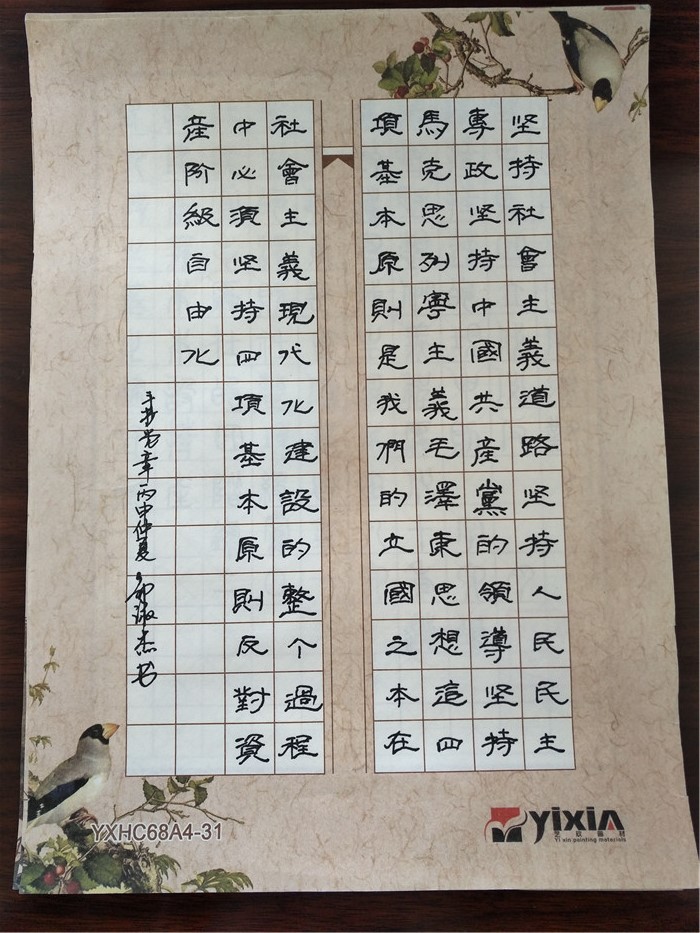 坚持社會主義道路坚持人民民主
專政坚持中國共産黨的領導坚持
馬克思列寧主義毛澤東思想這四
項基本原則是我們的立國之本在
社會主義現代化建設的整个過程
中必須坚持四項基本原則反對資
産阶級自由化
手抄党章丙申仲夏 淑杰书
YXHC68A4-31
yixin
Yi xin painting materials